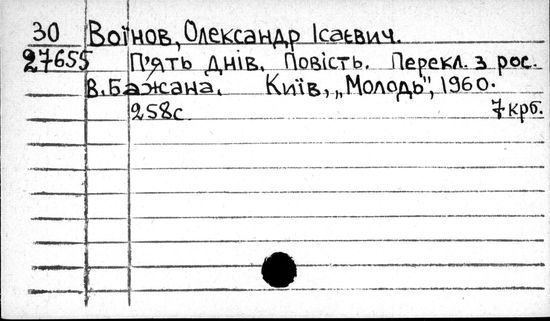 30 Воїнов, Олександр Ісаєвич.
27655 П'ять днів. Повість. Перекл. з рос.
В. Бажана. Київ, „Молодь", 1960.
258с 7 крб.